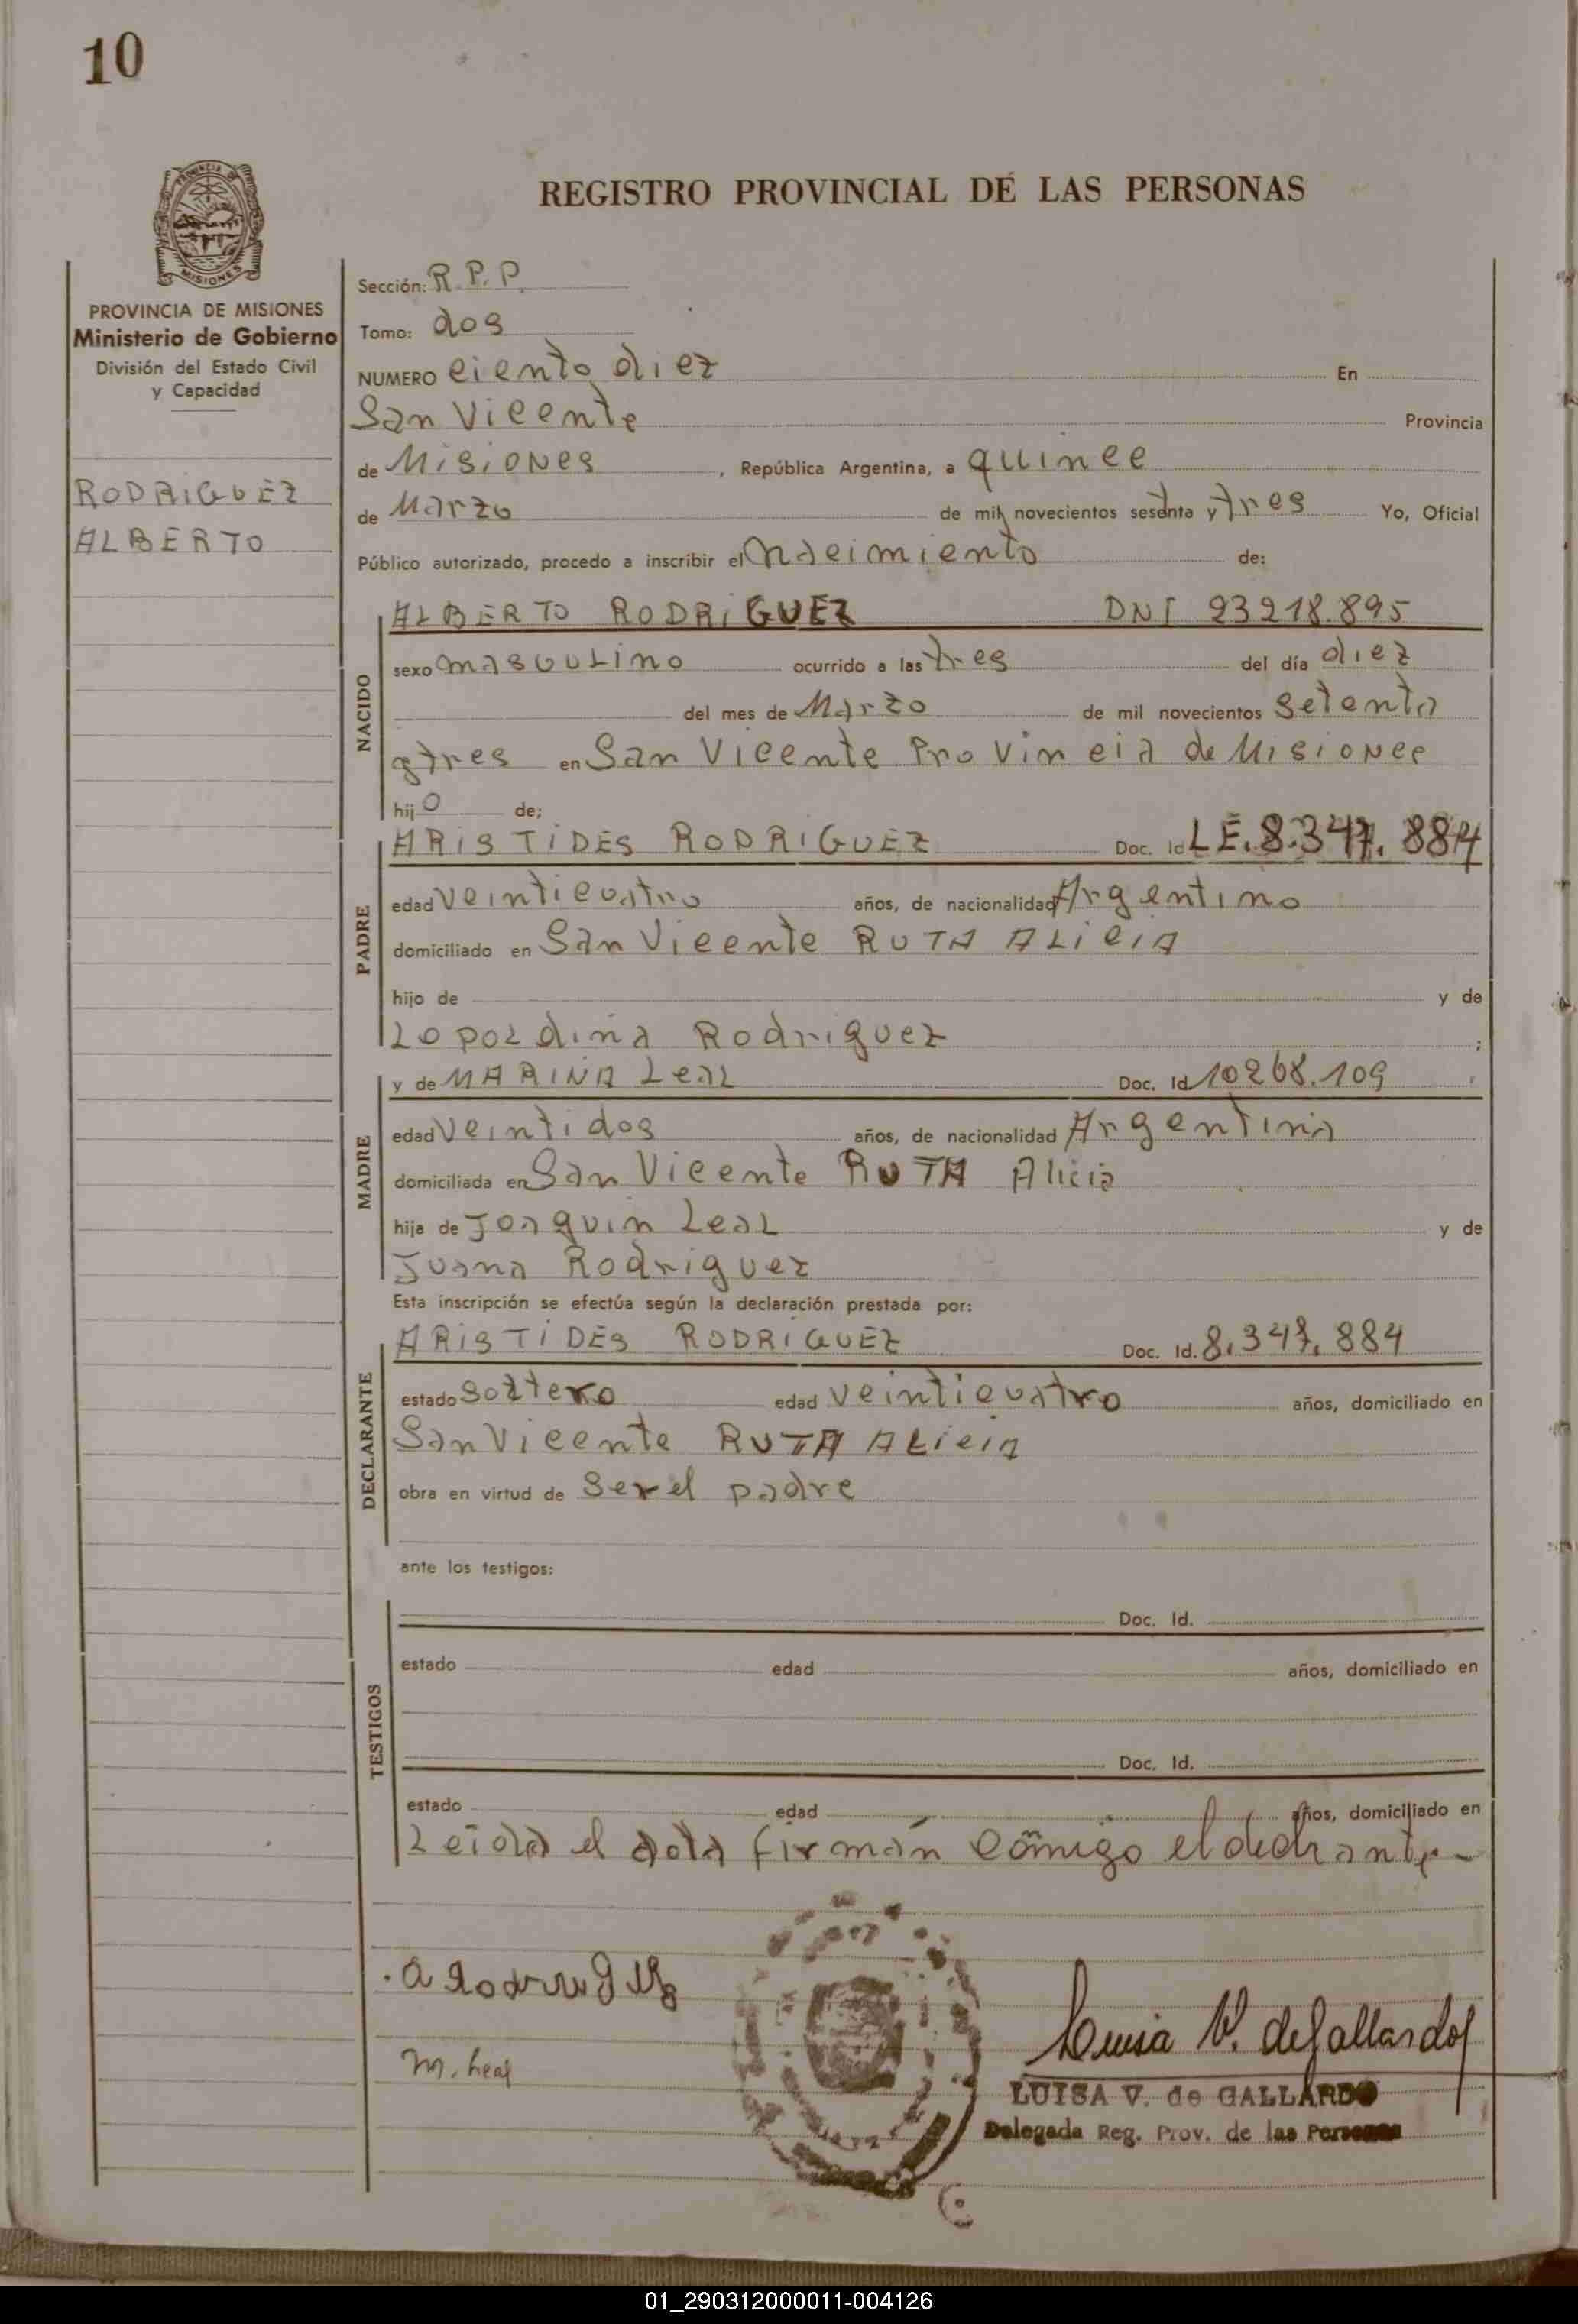 10
REGISTRO PROVINCIAL DE LAS PERSONAS
PROVINCIA DE MISIONES
Ministerio de Gobierno
División del Estado Civil
y Capacidad
RODRIGUEZ
ALBERTO
Sección: R.P.P.
Tomo: dos
NUMERO ciento diez En
San Vicente Provincia
de Misiones, República Argentina, a quince
de Marzo de mil novecientos sesenta y tres Yo, Oficial
Público autorizado, procedo a inscribir el nacimiento de:
ALBERTO RODRIGUEZ DNI 23218.895
NACIDO
sexo masculino ocurrido a las tres del día diez
del mes de Marzo de mil novecientos setenta
y tres en San Vicente Provincia de Misiones
hijo de;
ARISTIDES RODRIGUEZ Doc. Id LE.8.347.884
PADRE
edad veinticuatro años, de nacionalidad Argentino
domiciliado en San Vicente RUTA ALICIA
hijo de y de
Lopoldina Rodriguez ;
y de MARINA Leal Doc. Id 10268.109
MADRE
edad veintidos años, de nacionalidad Argentina
domiciliada en San Vicente RUTA Alicia
hija de Joaquin Leal y de
Juana Rodriguez
Esta inscripción se efectúa según la declaración prestada por:
ARISTIDES RODRIGUEZ Doc. Id. 8.347.884
DECLARANTE
estado soltero edad veinticuatro años, domiciliado en
San Vicente RUTA ALICIA
obra en virtud de ser el padre
ante los testigos:
Doc. Id.
TESTIGOS
estado edad años, domiciliado en
Doc. Id.
estado edad años, domiciliado en
Leida el acta firman comigo el declarante
a Rodriguez
M. Leal
Luisa V. de Gallardo
LUISA V. de GALLARDO
Delegada Reg. Prov. de las Personas
01_290312000011-004126